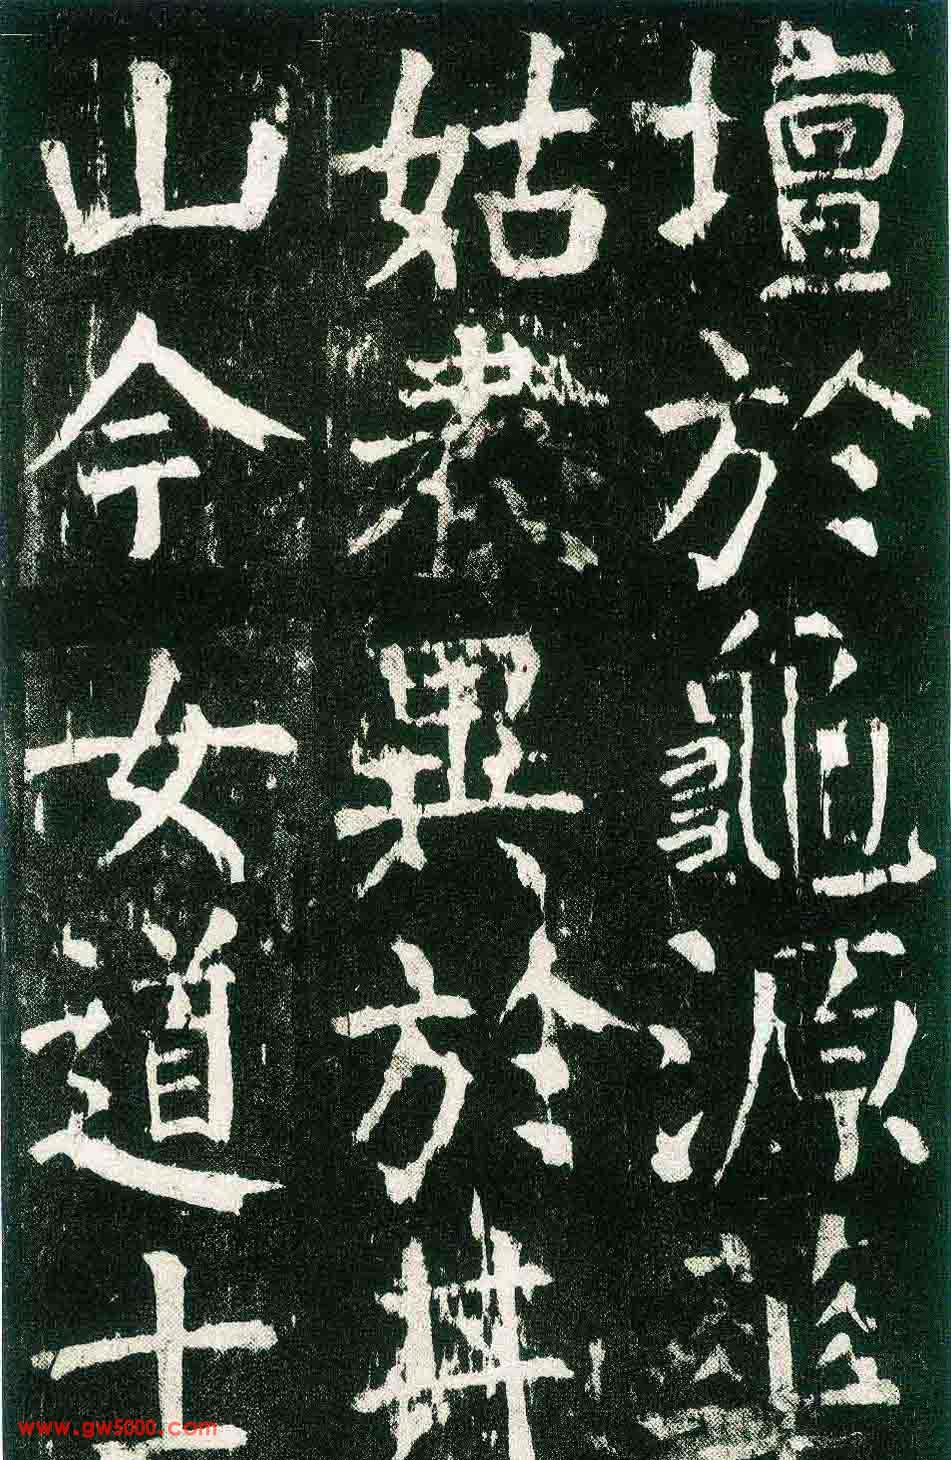 壇於龜源華
姑表異於井
山今女道士
www.gw5000.com